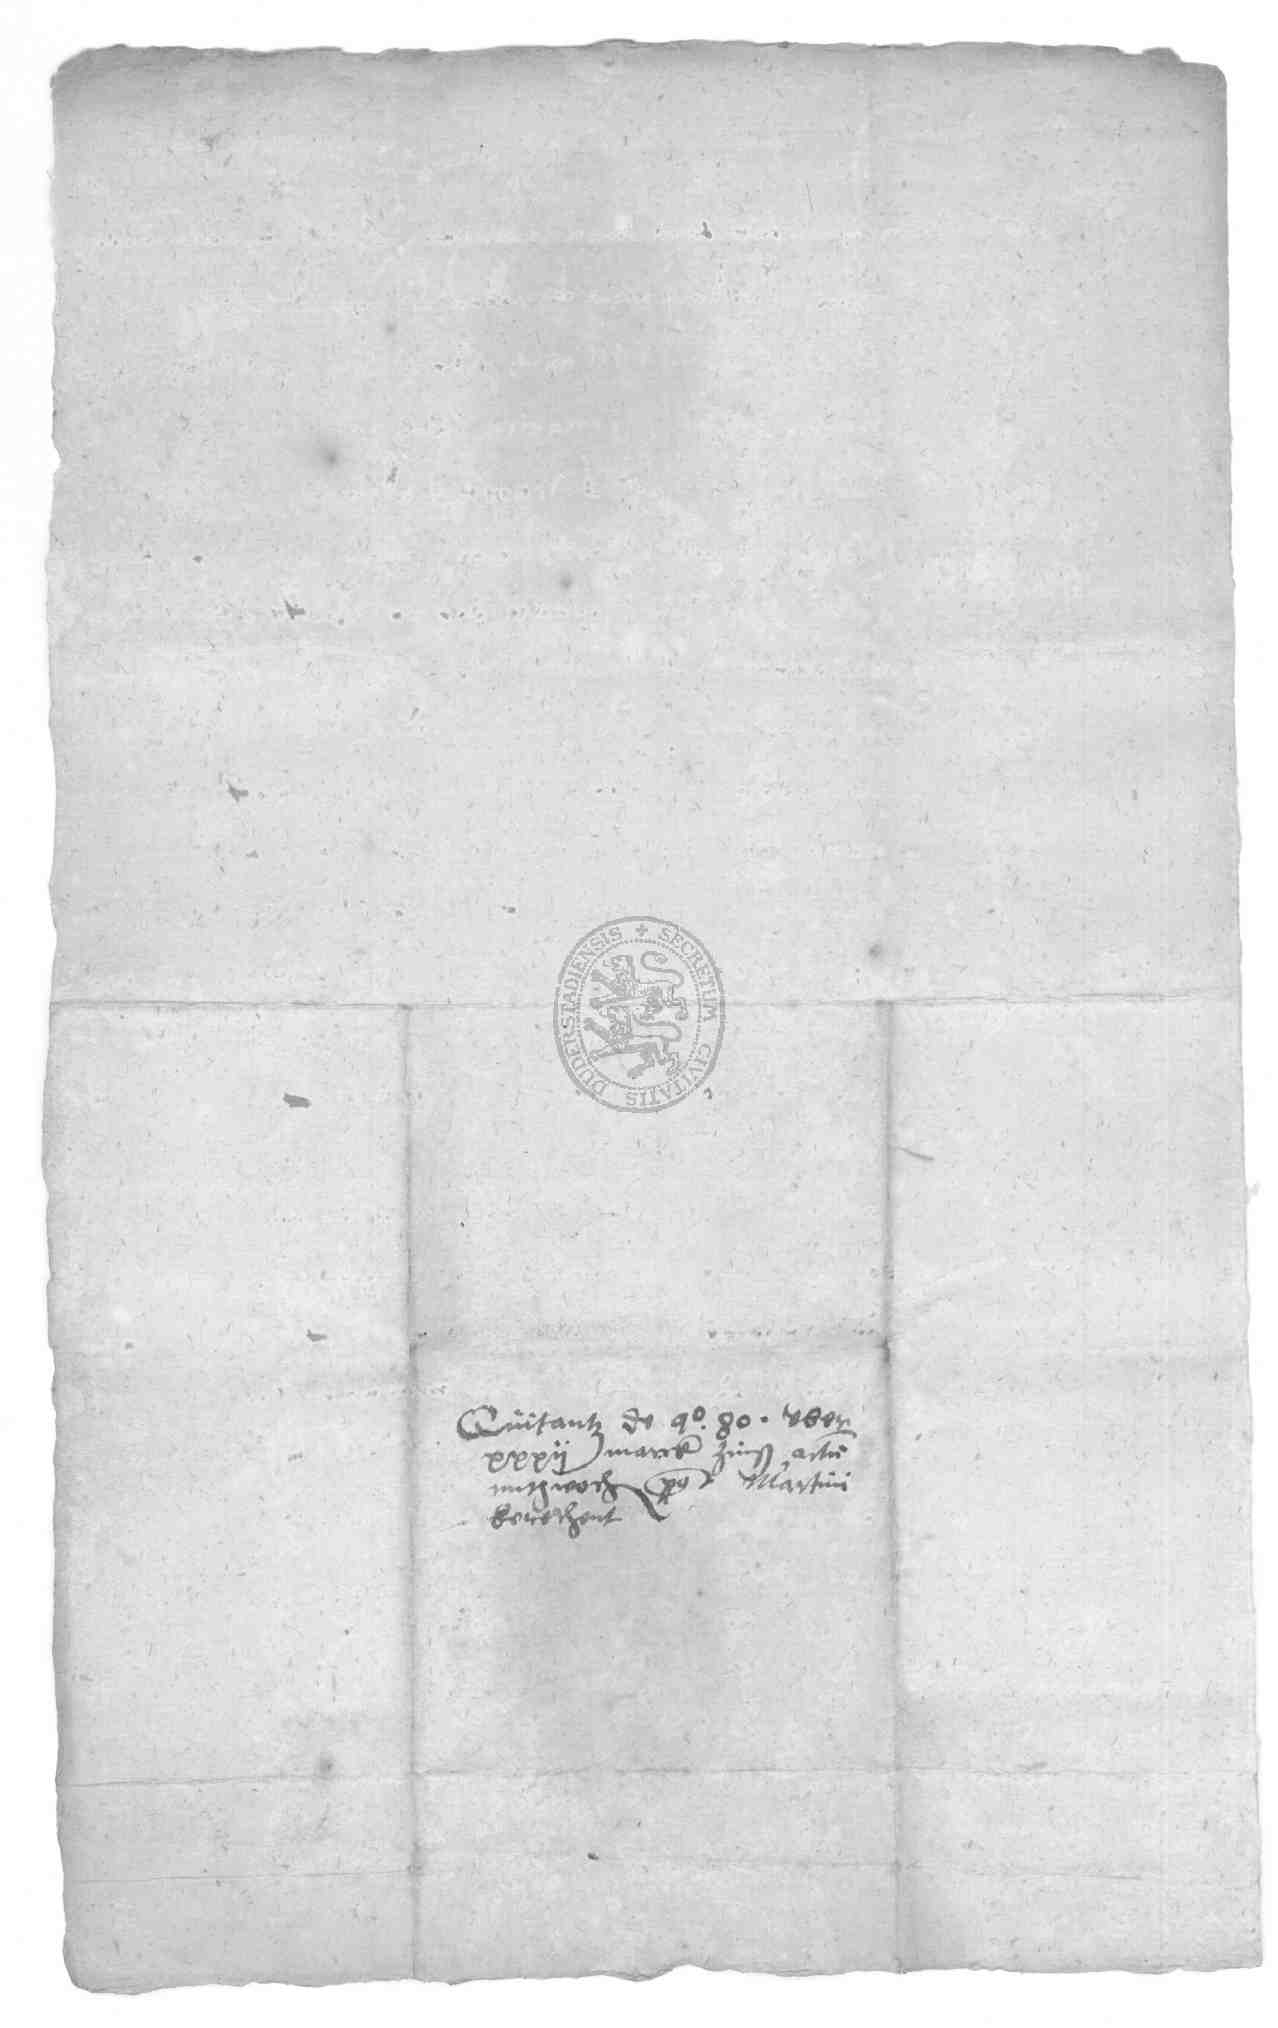 SECRETUM CIVITATIS DUDERSTADIENSIS
Quitantz de ao. 80. vber
xxxij marck zinß actu
mitzwoch po Martini